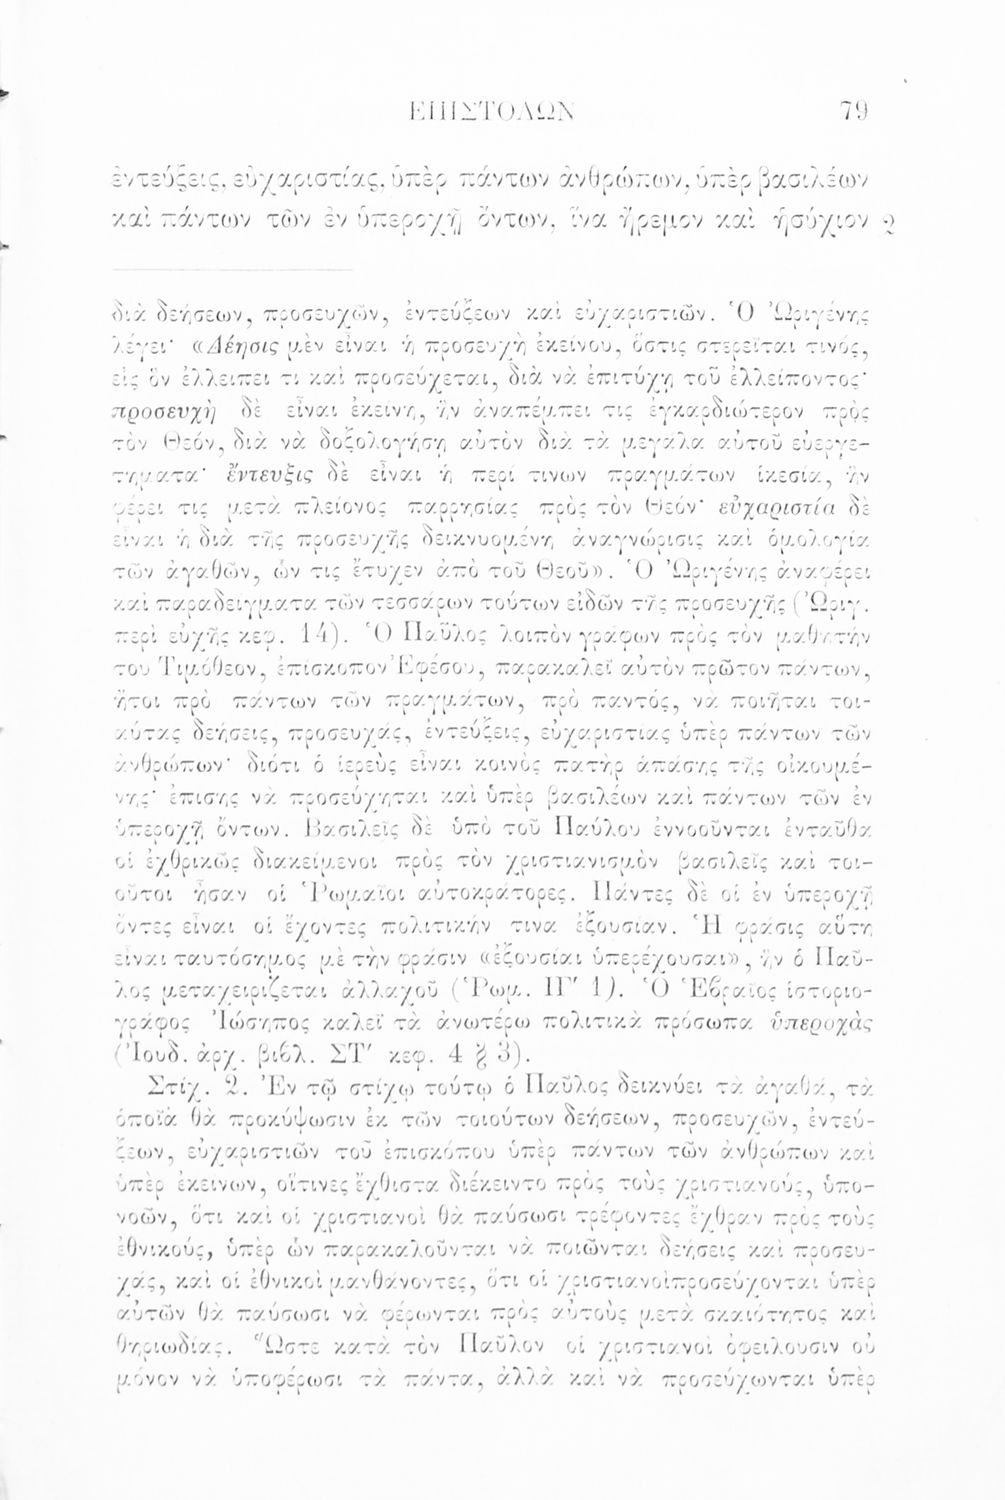 ΕΠΙΣΤΟΛΩΝ 79
ἐντεύξεις, εὐχαριστίας, ὑπὲρ πάντων ἀνθρώπων, ὑπὲρ βασιλέων
καὶ πάντων τῶν ἐν ὑπεροχῇ ὄντων, ἵνα ἤρεμον καὶ ἡσύχιον 2
διὰ δεήσεων, προσευχῶν, ἐντεύξεων καὶ εὐχαριστιῶν. Ὁ Ὠριγένης
λέγει· «Δέησις μὲν εἶναι ἡ προσευχὴ ἐκείνου, ὅστις στερεῖται τινός,
εἰς ὃν ἐλλείπει τι καὶ προσεύχεται, διὰ νὰ ἐπιτύχῃ τοῦ ἐλλείποντος·
προσευχὴ δὲ εἶναι ἐκείνη, ἣν ἀναπέμπει τις ἐγκαρδιώτερον πρὸς
τὸν Θεόν, διὰ νὰ δοξολογήσῃ αὐτὸν διὰ τὰ μεγάλα αὐτοῦ εὐεργε-
τήματα· ἔντευξις δὲ εἶναι ἡ περί τινων πραγμάτων ἱκεσία, ἣν
φέρει τις μετὰ πλείονος παρρησίας πρὸς τὸν Θεόν· εὐχαριστία δὲ
εἶναι ἡ διὰ τῆς προσευχῆς δεικνυομένη ἀναγνώρισις καὶ ὁμολογία
τῶν ἀγαθῶν, ὧν τις ἔτυχεν ἀπὸ τοῦ Θεοῦ». Ὁ Ὠριγένης ἀναφέρει
καὶ παραδείγματα τῶν τεσσάρων τούτων εἰδῶν τῆς προσευχῆς (Ὠριγ.
περὶ εὐχῆς κεφ. 14). Ὁ Παῦλος λοιπὸν γράφων πρὸς τὸν μαθητήν
του Τιμόθεον, ἐπίσκοπον Ἐφέσου, παρακαλεῖ αὐτὸν πρῶτον πάντων,
ἤτοι πρὸ πάντων τῶν πραγμάτων, πρὸ παντός, νὰ ποιῆται τοι-
αύτας δεήσεις, προσευχάς, ἐντεύξεις, εὐχαριστίας ὑπὲρ πάντων τῶν
ἀνθρώπων· διότι ὁ ἱερεὺς εἶναι κοινὸς πατὴρ ἁπάσης τῆς οἰκουμέ-
νης· ἐπίσης νὰ προσεύχηται καὶ ὑπὲρ βασιλέων καὶ πάντων τῶν ἐν
ὑπεροχῇ ὄντων. Βασιλεῖς δὲ ὑπὸ τοῦ Παύλου ἐννοοῦνται ἐνταῦθα
οἱ ἐχθρικῶς διακείμενοι πρὸς τὸν χριστιανισμὸν βασιλεῖς καὶ τοι-
οῦτοι ἦσαν οἱ Ῥωμαῖοι αὐτοκράτορες. Πάντες δὲ οἱ ἐν ὑπεροχῇ
ὄντες εἶναι οἱ ἔχοντες πολιτικήν τινα ἐξουσίαν. Ἡ φράσις αὕτη
εἶναι ταυτόσημος μὲ τὴν φράσιν «ἐξουσίαι ὑπερέχουσαι», ἣν ὁ Παῦ-
λος μεταχειρίζεται ἀλλαχοῦ (Ῥωμ. ΙΓ′ 1). Ὁ Ἑβραῖος ἱστοριο-
γράφος Ἰώσηπος καλεῖ τὰ ἀνωτέρω πολιτικὰ πρόσωπα ὑπεροχὰς
(Ἰουδ. ἀρχ. βιβλ. ΣΤ′ κεφ. 4 § 3).
Στίχ. 2. Ἐν τῷ στίχῳ τούτῳ ὁ Παῦλος δεικνύει τὰ ἀγαθά, τὰ
ὁποῖα θὰ προκύψωσιν ἐκ τῶν τοιούτων δεήσεων, προσευχῶν, ἐντεύ-
ξεων, εὐχαριστιῶν τοῦ ἐπισκόπου ὑπὲρ πάντων τῶν ἀνθρώπων καὶ
ὑπὲρ ἐκείνων, οἵτινες ἔχθιστα διέκειντο πρὸς τοὺς χριστιανούς, ὑπο-
νοῶν, ὅτι καὶ οἱ χριστιανοὶ θὰ παύσωσι τρέφοντες ἔχθραν πρὸς τοὺς
ἐθνικούς, ὑπὲρ ὧν παρακαλοῦνται νὰ ποιῶνται δεήσεις καὶ προσευ-
χάς, καὶ οἱ ἐθνικοὶ μανθάνοντες, ὅτι οἱ χριστιανοὶ προσεύχονται ὑπὲρ
αὐτῶν θὰ παύσωσι νὰ φέρωνται πρὸς αὐτοὺς μετὰ σκαιότητος καὶ
θηριωδίας. Ὥστε κατὰ τὸν Παῦλον οἱ χριστιανοὶ ὀφείλουσιν οὐ
μόνον νὰ ὑποφέρωσι τὰ πάντα, ἀλλὰ καὶ νὰ προσεύχωνται ὑπὲρ